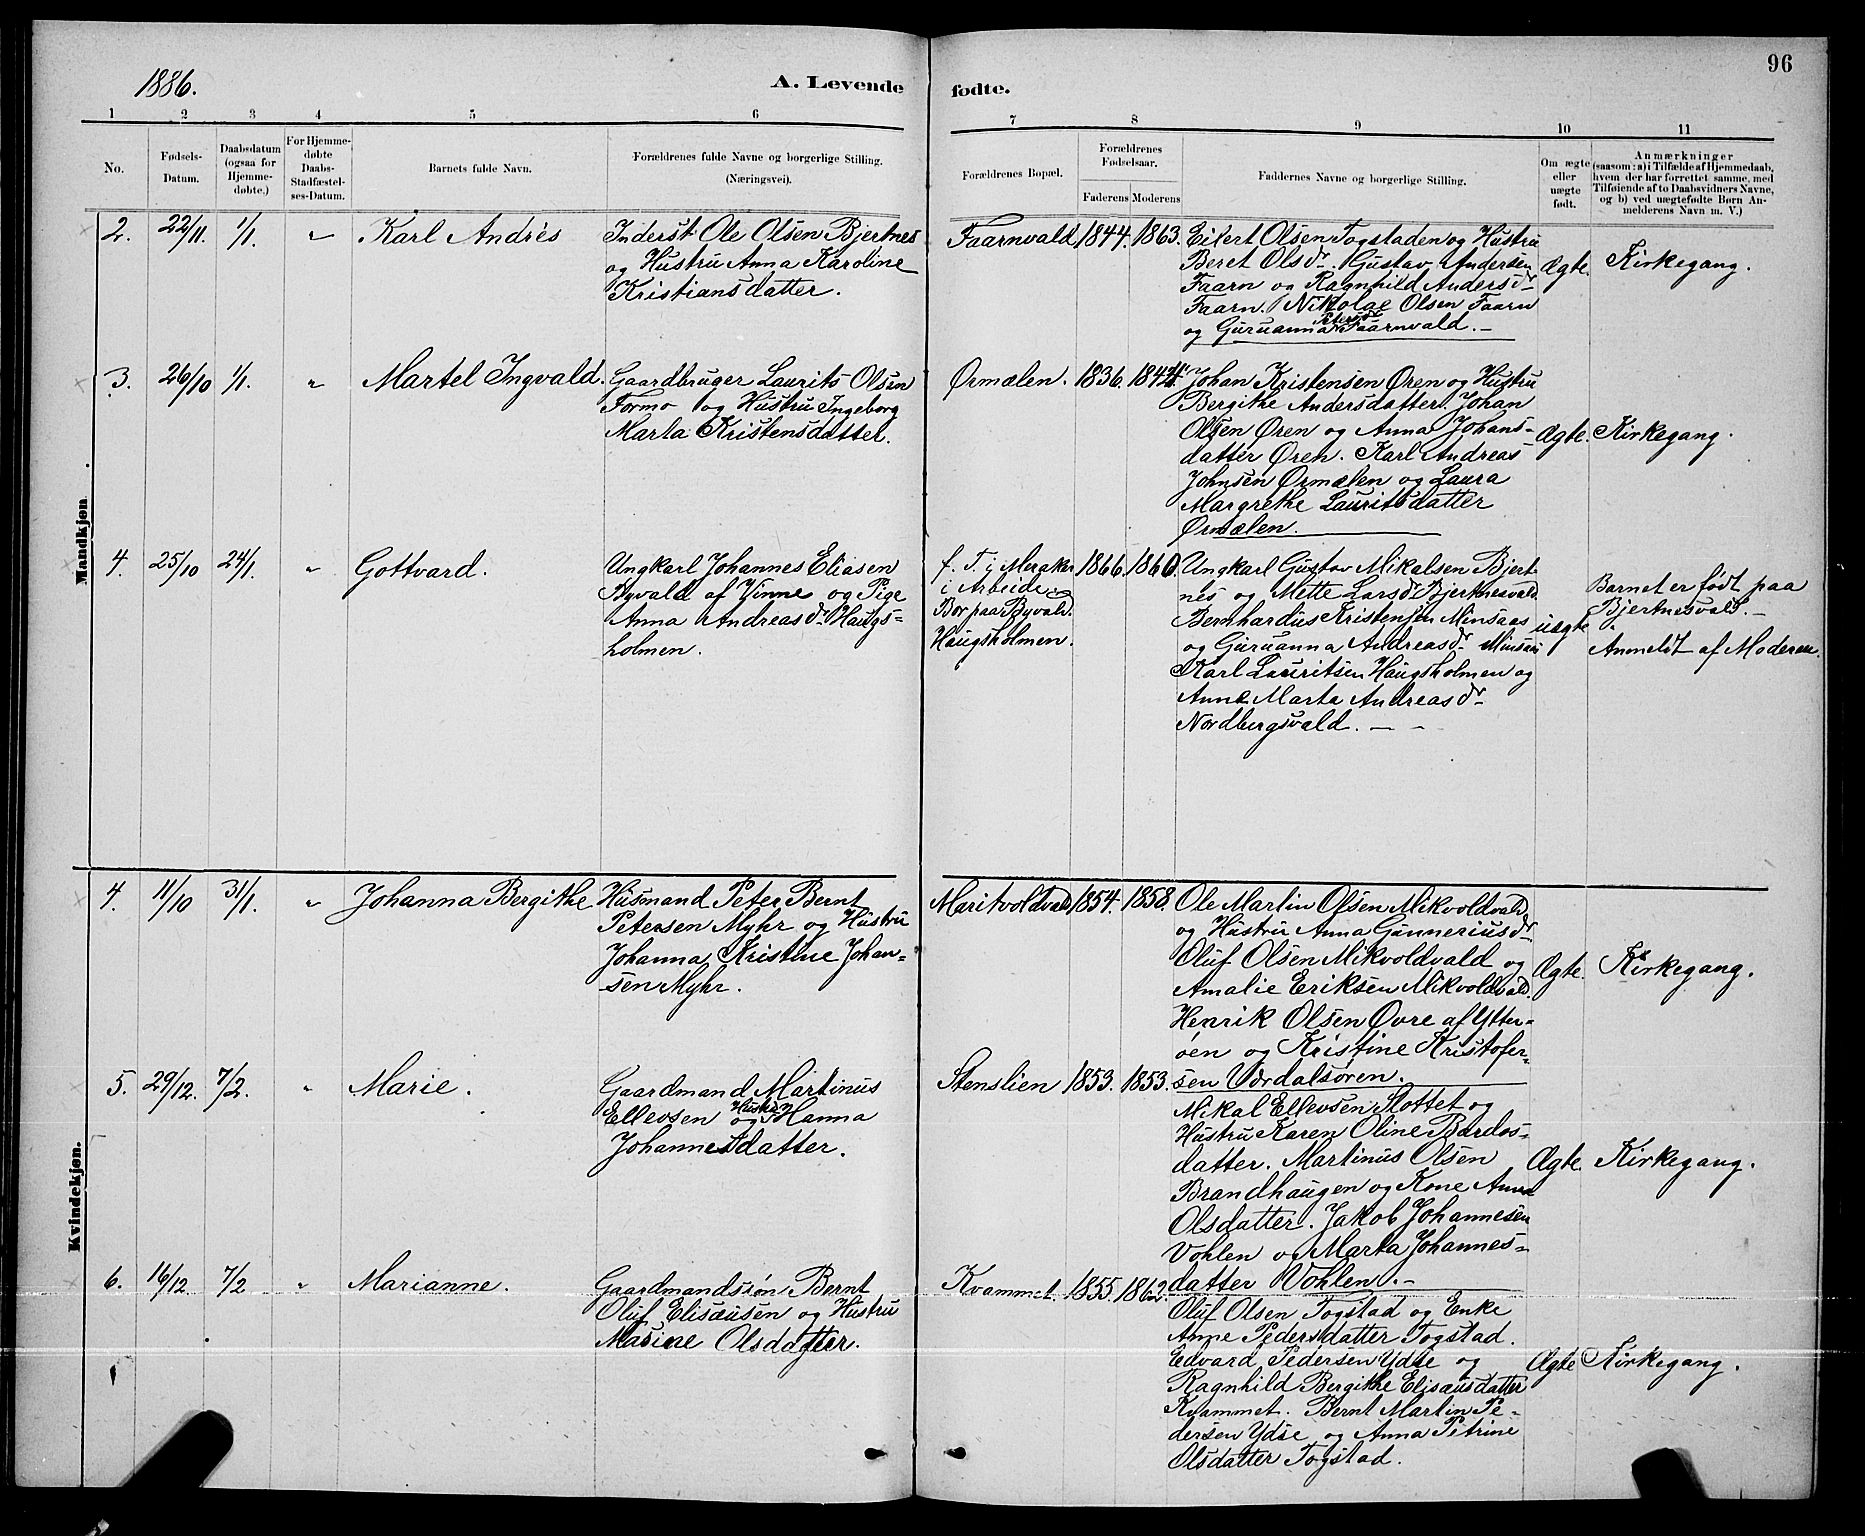 1886.
A. Levende fødte.
96
1 2 3 4 5 6 7 8 9 10 11
No.
Fødsels-
Datum.
Daabsdatum
(ogsaa for
Hjemme-
døbte.)
For Hjemme-
døbte
Daabs-
Stadfæstel-
ses-Datum.
Barnets fulde Navn.
Forældrenes fulde Navne og borgerlige Stilling.
(Næringsvei).
Forældrenes Bopæl.
Forældrenes
Fødselsaar.
Faderens Moderens
Faddernes Navne og borgerlige Stilling.
Om ægte
eller
uægte
født.
Anmærkninger
(saasom: a) i Tilfælde af Hjemmedaab,
hvem der har forrettet samme, med
Tilføiende af to Daabsvidners Navne,
og b) ved uægtefødte Børn An-
melderens Navn m. V.)
Mandkjøn.
2. 22/11. 1/1. " Karl Andrés
Inderst Ole Olsen Bjertnes
og Hustru Anna Karoline
Kristiansdatter.
Faarnvald 1844. 1863.
Eilert Olsen Togstaden og Hustru
Beret Olsdr. Gustav Andersen
Faarn og Ragnhild Andersdr
Faarn. Nikolai Olsen Faarn
og Guruanna Petersdr Faarnvald.
Ægte. Kirkegang.
3. 26/10 1/1. " Martel Ingvald.
Gaardbruger Laurits Olsen
Formo og Hustru Ingeborg
Marta Kristensdatter.
Ørmælen. 1836. 1844.
Johan Kristensen Ören og Hustru
Bergithe Andersdatter. Johan
Olsen Ören og Anna Johans-
datter Ören. Karl Andreas
Johnsen Ørmælen og Laura
Margrethe Lauritsdatter
Ørmælen.
Ægte. Kirkegang.
4. 25/10 24/1. " Gottvard.
Ungkarl Johannes Eliasen
Byvald af Vinne og Pige
Anna Andreasdr. Haugs-
holmen.
f. T. i Meraker
i Arbeide.
Bor paa Byvald.
Haugsholmen.
1866. 1860.
Ungkarl Gustav Mikalsen Bjert-
nes og Mette Larsdr Bjertnesvald.
Bernhardus Kristensen Minsaas
og Guruanna Andreasdr Minsaas
Karl Lauritsen Haugsholmen og
Anne Marta Andreasdr
Nordbergsvald.
uægte
Barnet er født paa
Bjertnesvald.
Anmeldt af Moderen.
Kvindekjøn.
4. 11/10 31/1. " Johanna Bergithe
Husmand Peter Bernt
Petersen Myhr og Hustru
Johanna Kristine Johan-
sen Myhr.
Maritvoldvald 1854. 1858.
Ole Martin Olsen Mikvoldvald
og Hustru Anna Gunneriusdr
Oluf Olsen Mikvoldvald og
Amalie Eriksen Mikvoldvald.
Henrik Olsen Øvre af Ytter-
öen og Kristine Kristofer-
sen Værdalsøren.
Ægte. Kirkegang.
5. 29/12. 7/2. " Marie.
Gaardmand Martinus
Ellevsen og Hustru Hanna
Johannesdatter.
Stenslien 1853. 1853.
Mikal Ellevsen Slottet og
Hustru Karen Oline Bardos-
datter. Martinus Olsen
Brandhaugen og Kone Anna
Olsdatter. Jakob Johannesen
Vohlen og Marta Johannes-
datter Vohlen.
Ægte. Kirkegang.
6. 16/12. 7/2 " Marianne.
Gaardmandssøn Bernt
Oluf Elisæusen og Hustru
Masine Olsdatter.
Kvammet. 1855. 1862.
Oluf Olsen Togstad og Enke
Anne Pedersdatter Togstad.
Edvard Pedersen Ydse og
Ragnhild Bergithe Elisæusdatter
Kvammet. Bernt Martin Pe-
dersen Ydse og Anna Petrine
Olsdatter Togstad.
Ægte Kirkegang.